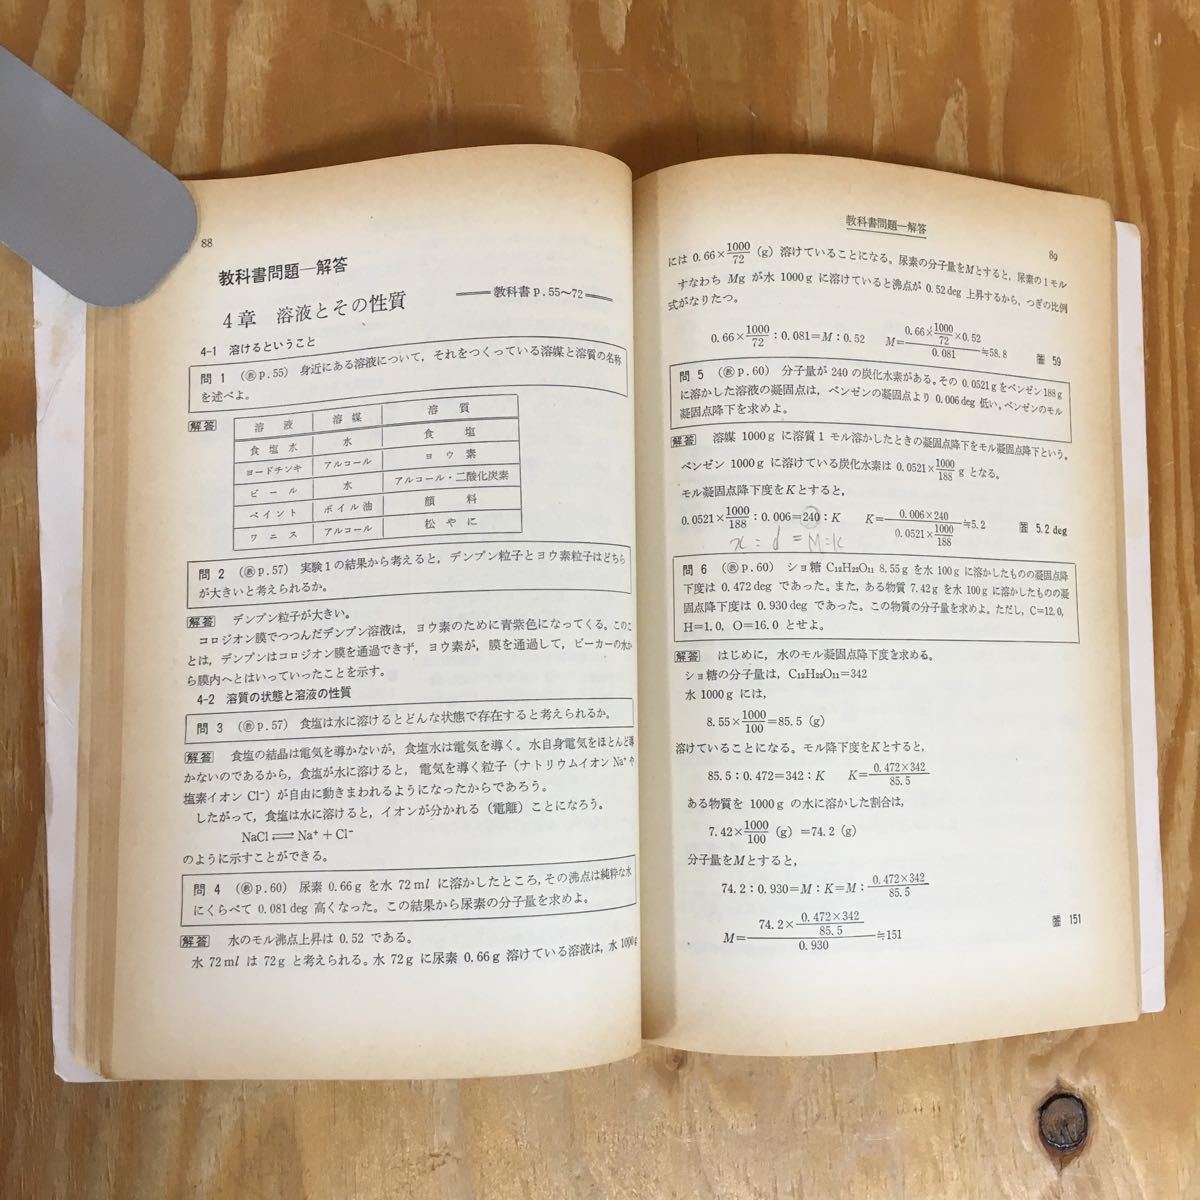 88
教科書問題—解答
教科書 p.55〜72
4章 溶液とその性質
4-1 溶けるということ
問 1 (㊙p.55) 身近にある溶液について，それをつくっている溶媒と溶質の名称
を述べよ。
解答
溶液 溶媒 溶質
食塩水 水 食塩
ヨードチンキ アルコール ヨウ素
ビール 水 アルコール・二酸化炭素
ペイント ボイル油 顔料
ワニス アルコール 松やに
問 2 (㊙p.57) 実験1の結果から考えると，デンプン粒子とヨウ素粒子はどちら
が大きいと考えられるか。
解答 デンプン粒子が大きい。
コロジオン膜でつつんだデンプン溶液は，ヨウ素のために青紫色になってくる。このこ
とは，デンプンはコロジオン膜を通過できず，ヨウ素が，膜を通過して，ビーカーの水か
ら膜内へとはいっていったことを示す。
4-2 溶質の状態と溶液の性質
問 3 (㊙p.57) 食塩は水に溶けるとどんな状態で存在すると考えられるか。
解答 食塩の結晶は電気を導かないが，食塩水は電気を導く。水自身電気をほとんど導
かないのであるから，食塩が水に溶けると，電気を導く粒子（ナトリウムイオン Na⁺や
塩素イオン Cl⁻）が自由に動きまわれるようになったからであろう。
したがって，食塩は水に溶けると，イオンが分かれる（電離）ことになろう。
NaCl⇄Na⁺+Cl⁻
のように示すことができる。
問 4 (㊙p.60) 尿素 0.66g を水 72ml に溶かしたところ，その沸点は純粋な水
にくらべて 0.081deg 高くなった。この結果から尿素の分子量を求めよ。
解答 水のモル沸点上昇は 0.52 である。
水 72ml は 72g と考えられる。水 72g に尿素 0.66g 溶けている溶液は，水 1000g
教科書問題—解答
89
には 0.66×1000/72 (g) 溶けていることになる。尿素の分子量をMとすると，尿素の1モル
すなわち Mg が水 1000g に溶けていると沸点が 0.52deg 上昇するから，つぎの比例
式がなりたつ。
0.66×1000/72：0.081=M：0.52 M=(0.66×1000/72×0.52)/0.081≒58.8 答 59
問 5 (㊙p.60) 分子量が 240 の炭化水素がある。その 0.0521g をベンゼン188g
に溶かした溶液の凝固点は，ベンゼンの凝固点より 0.006deg 低い。ベンゼンのモル
凝固点降下を求めよ。
解答 溶媒 1000g に溶質1モル溶かしたときの凝固点降下をモル凝固点降下という。
ベンゼン 1000g に溶けている炭化水素は 0.0521×1000/188 g となる。
モル凝固点降下度をKとすると，
0.0521×1000/188：0.006=240：K K=(0.006×240)/(0.0521×1000/188)≒5.2 答 5.2deg
x：d=M：k
問 6 (㊙p.60) ショ糖 C₁₂H₂₂O₁₁ 8.55g を水 100g に溶かしたものの凝固点降
下度は 0.472deg であった。また，ある物質 7.42g を水 100g に溶かしたものの凝
固点降下度は 0.930deg であった。この物質の分子量を求めよ。ただし，C=12.0,
H=1.0, O=16.0 とせよ。
解答 はじめに，水のモル凝固点降下度を求める。
ショ糖の分子量は，C₁₂H₂₂O₁₁=342
水 1000g には，
8.55×1000/100=85.5 (g)
溶けていることになる。モル降下度をKとすると，
85.5：0.472=342：K K=(0.472×342)/85.5
ある物質を 1000g の水に溶かした割合は，
7.42×1000/100 (g)=74.2 (g)
分子量をMとすると，
74.2：0.930=M：K=M：(0.472×342)/85.5
M=(74.2×(0.472×342)/85.5)/0.930≒151 答 151